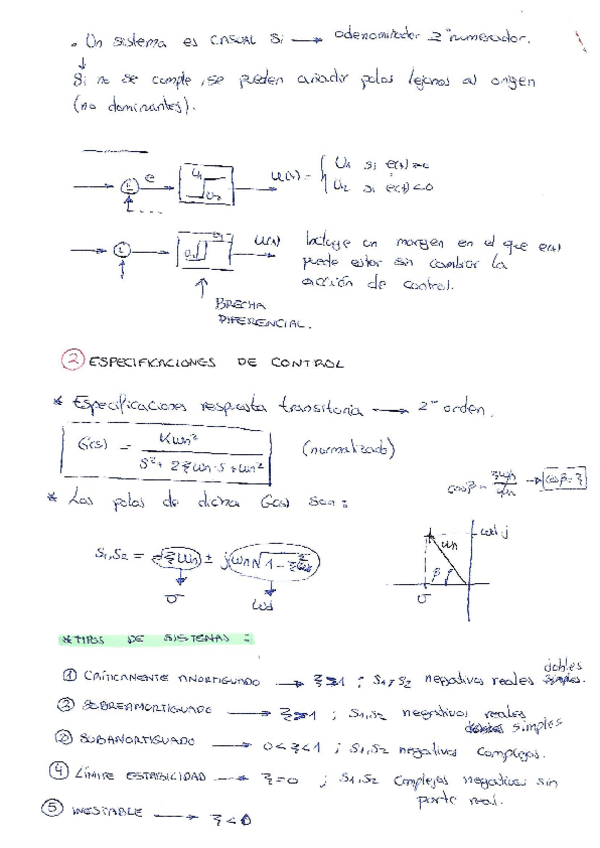 • Un sistema es CASUAL si → ∂denominador ≥ ∂numerador.
↓
Si no se cumple, se pueden añadir polos lejanos al origen
(no dominantes).
e U1 U2 U(t) = { U1 si e(t)>0
U2 si e(t)<0
U(t) Incluye un margen en el que e(t)
puede estar sin cambiar la
acción de control.
↑
BRECHA
DIFERENCIAL.
② ESPECIFICACIONES DE CONTROL
* Especificaciones respuesta transitoria → 2º orden.
G(s) = Kωn² / (s² + 2ξωn·s + ωn²) (normalizado)
cosβ = ξωn/ωn → cosβ = ξ
* Los polos de dicha G(s) son:
S1,S2 = -ξωn ± jωn√1-ξ²
σ ωd
ωd j
ωn
β
σ
*TIPOS DE SISTEMAS:
① CRÍTICAMENTE AMORTIGUADO → ξ=1 ; S1,S2 negativos reales dobles
② SOBREAMORTIGUADO → ξ>1 ; S1,S2 negativos reales
simples
③ SUBAMORTIGUADO → 0<ξ<1 ; S1,S2 negativos complejos.
④ LÍMITE ESTABILIDAD → ξ=0 ; S1,S2 complejos negativos sin
parte real.
⑤ INESTABLE → ξ<0